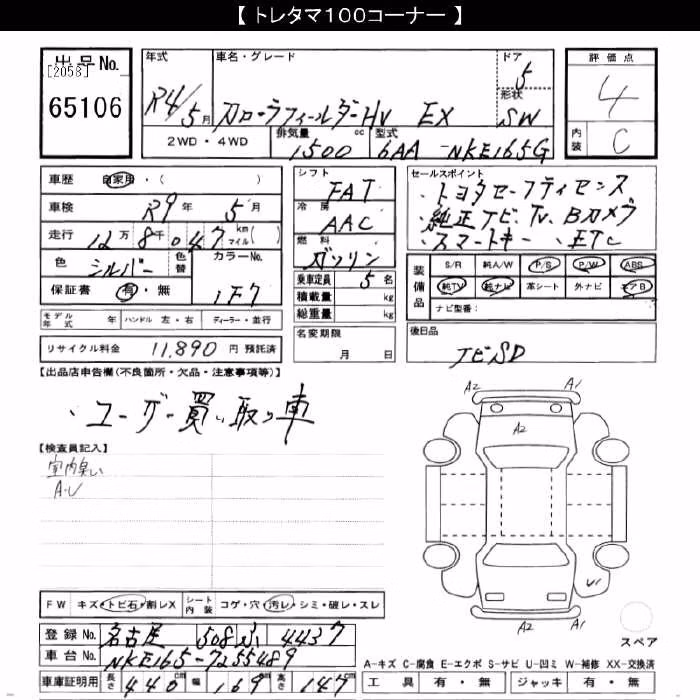 【 トレタマ100コーナー 】
出品No.
[2058]
65106
年式
R4/5月
車名・グレード
カローラフィールダーHV EX
ドア
5
形状
SW
評価点
4
内装
C
2WD・4WD
排気量
1500 cc
型式
6AA-NKE165G
車歴 自家用・( )
車検 R9年 5月
走行 12万8千047 km マイル( )
色 シルバー 色替 カラーNo. 1F7
保証書 有・無
モデル年式 年 ハンドル 左・右 ディーラー・並行
リサイクル料金 11,890 円 預託済
シフト
FAT
冷房
AAC
燃料
ガソリン
乗車定員 5名
積載量 kg
総重量 kg
名変期限
月 日
セールスポイント
・トヨタセーフティセンス
・純正ナビ、TV、Bカメラ
・スマートキー ・ETC
装備品
S/R 純A/W P/S P/W ABS
純TV 純ナビ 革シート 外ナビ エアB
ナビ型番:
後日品
ナビSD
【出品店申告欄(不良箇所・欠品・注意事項等)】
・ユーザー買い取り車
【検査員記入】
室内臭い
A・U
A2 A1
A2
U1
A2 A1
スペア
FW キズ・トビ石・割レX シート内装 コゲ・穴・汚レ・シミ・破レ・スレ
登録No. 名古屋 508 ふ 4437
車台No. NKE165-7255489
車庫証明用 長さ 440cm 幅 169cm 高さ 147cm
A-キズ C-腐食 E-エクボ S-サビ U-凹ミ W-補修 XX-交換済
工具 有・無 ジャッキ 有・無